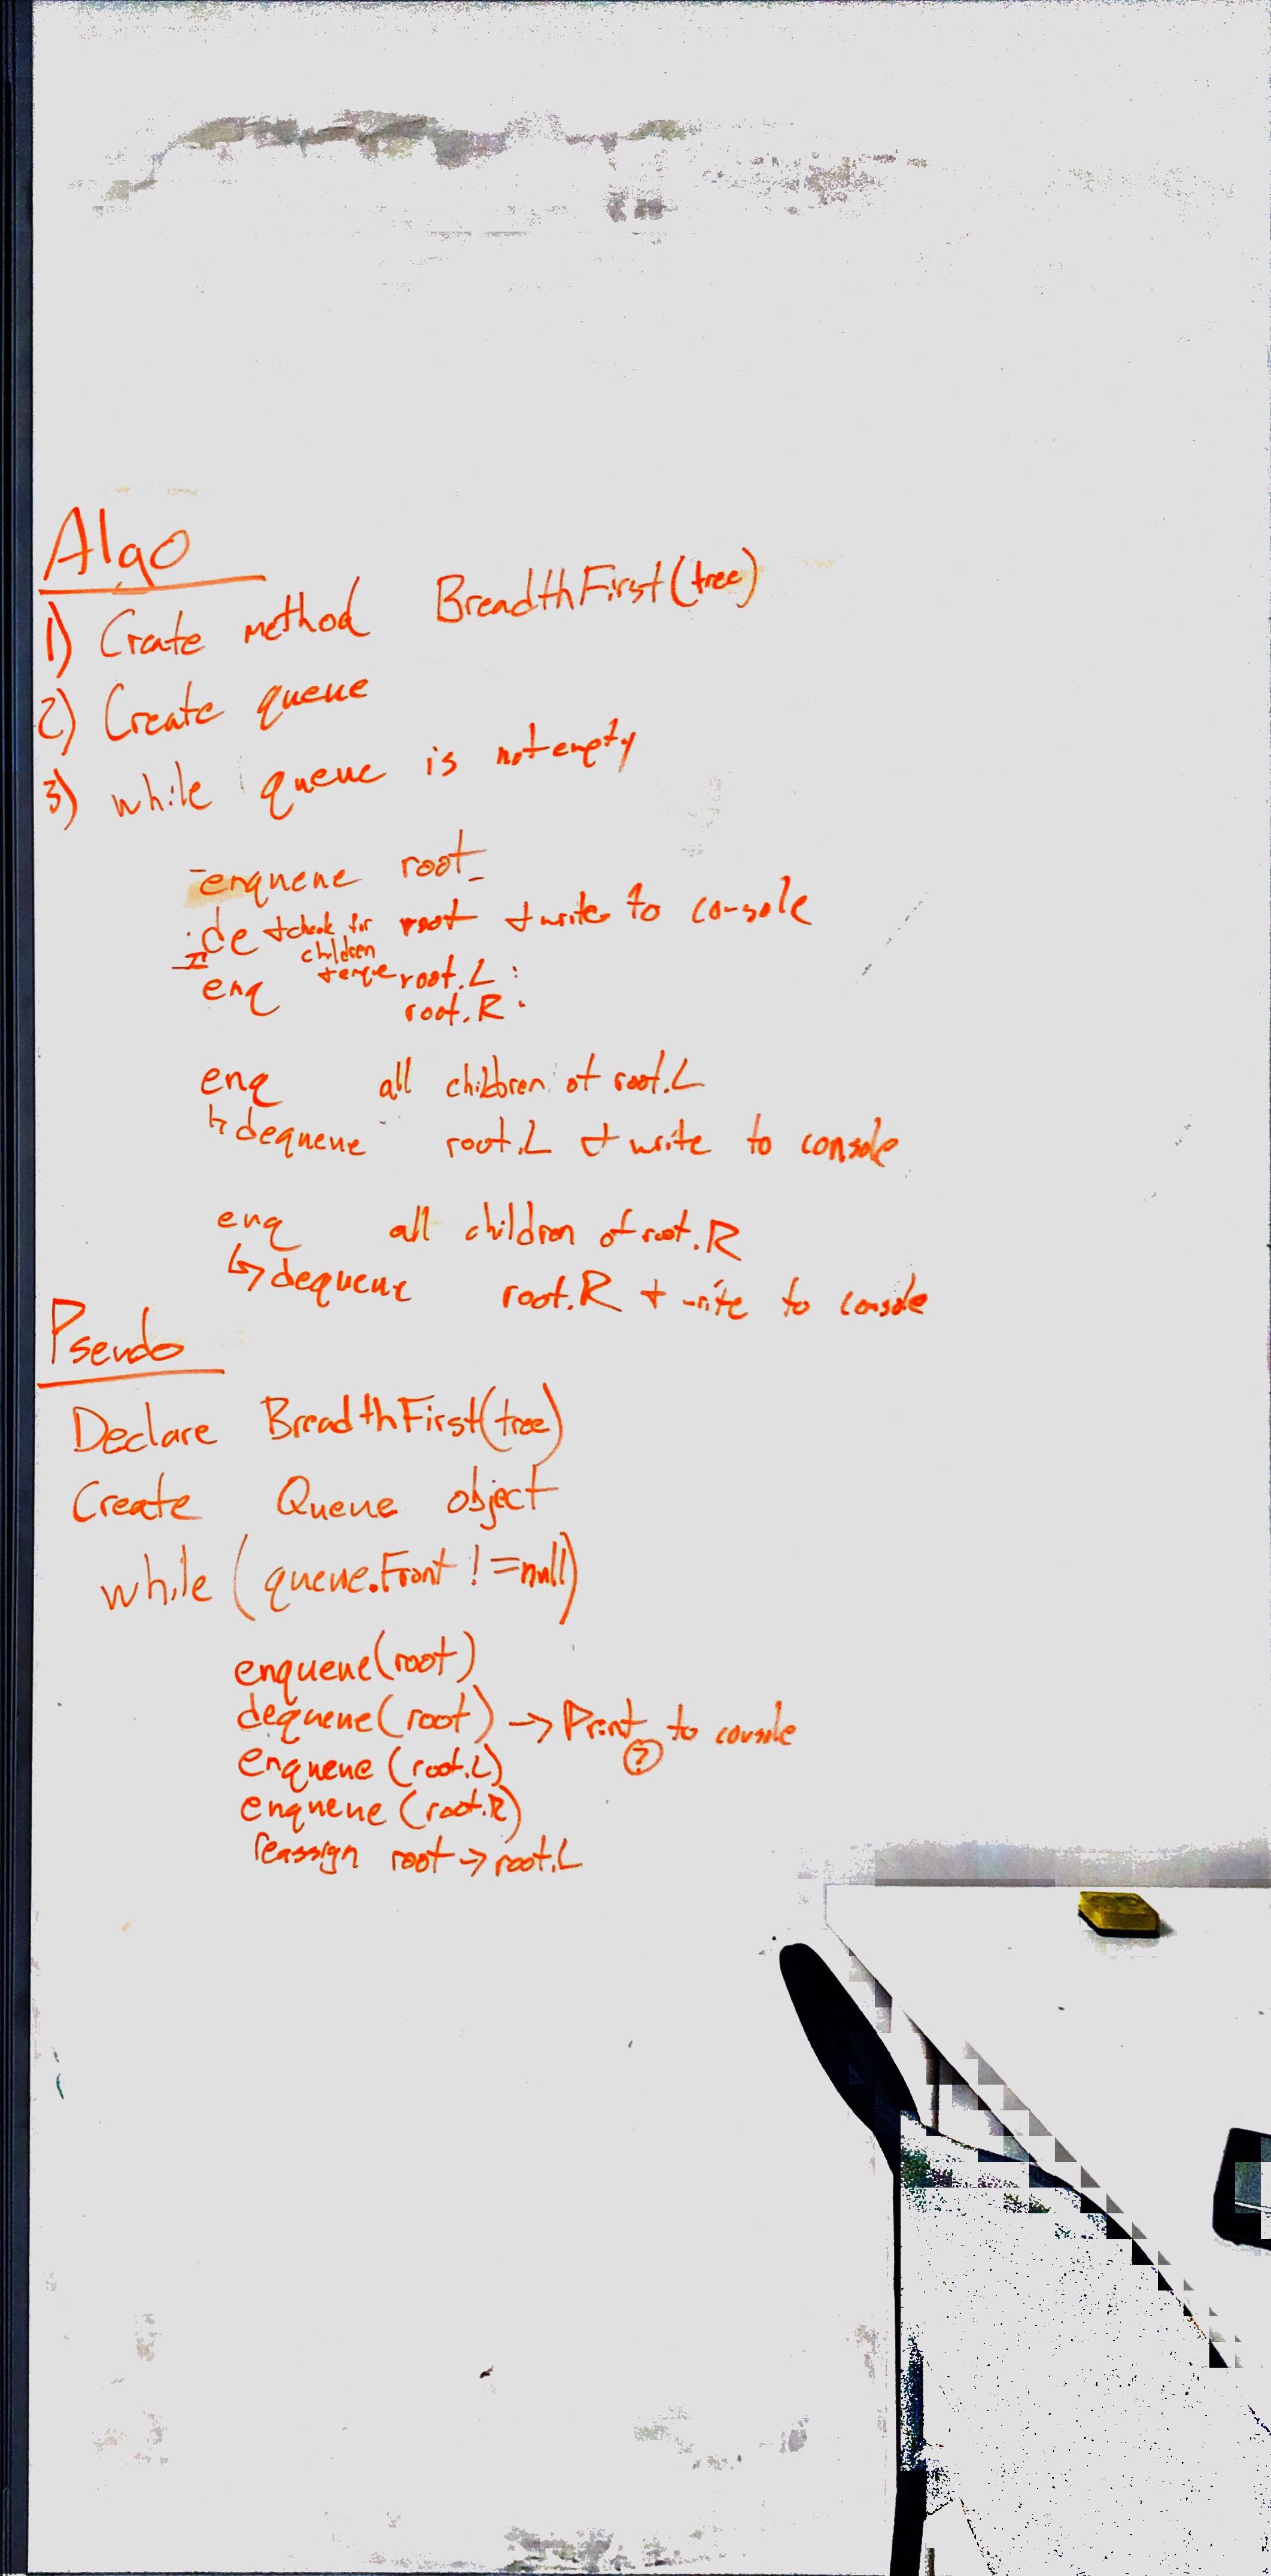 Algo
1) Create method BreadthFirst(tree)
2) Create queue
3) while queue is not empty
enqueue root
de + check for children + enque root + write to console
enq root.L :
root.R :
enq all children of root.L
↳ dequeue root.L + write to console
enq all children of root.R
↳ dequeue root.R + write to console
Pseudo
Declare BreadthFirst(tree)
Create Queue object
while (queue.Front != null)
enqueue(root)
dequeue(root) → Print to console
?
enqueue (root.L)
enqueue (root.R)
reassign root → root.L